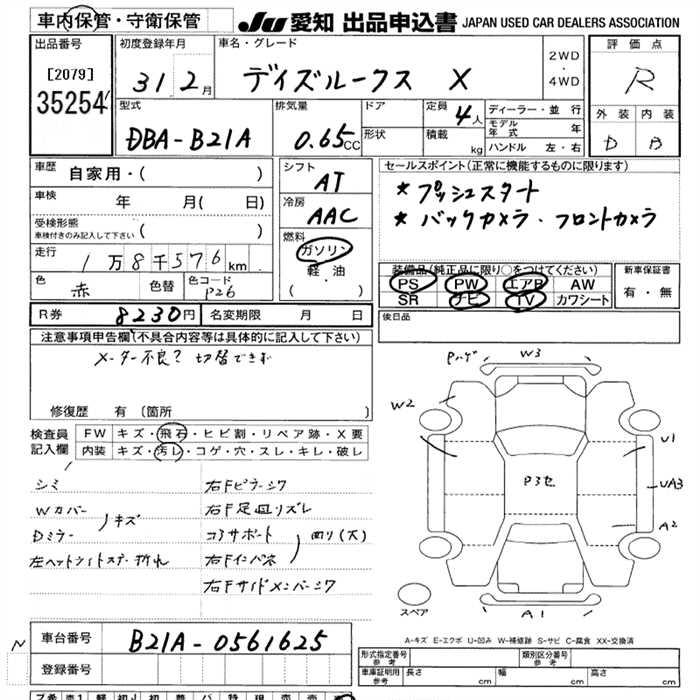 車内保管・守衛保管
JU 愛知 出品申込書 JAPAN USED CAR DEALERS ASSOCIATION
出品番号
[2079]
35254
初度登録年月
31 2月
車名・グレード
デイズルークス X
2WD
・
4WD
評価点
R
外装 内装
D B
型式
DBA-B21A
排気量
0.65CC
ドア
形状
定員 4人
積載 kg
ディーラー・並行
モデル年式 年
ハンドル 左・右
車歴
自家用・( )
車検
年 月( 日)
受検形態
(車検付きのみ記入して下さい)
走行
1万8千576km
色
赤
色替
色コード
P26
シフト
AT
冷房
AAC
燃料
ガソリン
・
軽・油
( )
セールスポイント(正常に機能するものに限ります)
* プッシュスタート
* バックカメラ・フロントカメラ
装備品(純正品に限り○をつけてください)
PS PW エアB AW
SR ナビ TV カワシート
新車保証書
有・無
後日品
R券 8230円 名変期限 月 日
注意事項申告欄(不具合内容等は具体的に記入して下さい)
メーター不良? 切替できず
修復歴 有 〔箇所 〕
検査員
記入欄
FW キズ・飛石・ヒビ割・リペア跡・X要
内装 キズ・汚レ・コゲ・穴・スレ・キレ・破レ
シミ
Wカバー
Dミラー
キズ
左ヘットライトステー折れ
右Fピラーシワ
右F足回リズレ
コアサポート
右Fインパネ
凹リ(大)
右Fサイドメンバーシワ
Pハゲ W3
W2
U1
P3セ
UA3
A2
A1
スペア
A-キズ E-エクボ U-凹み W-補修跡 S-サビ C-腐食 XX-交換済
車台番号 B21A-0561625
登録番号
N
形式指定番号
参考
類別区分番号
参考
車庫証明用
参考
長さ cm 幅 cm 高さ cm